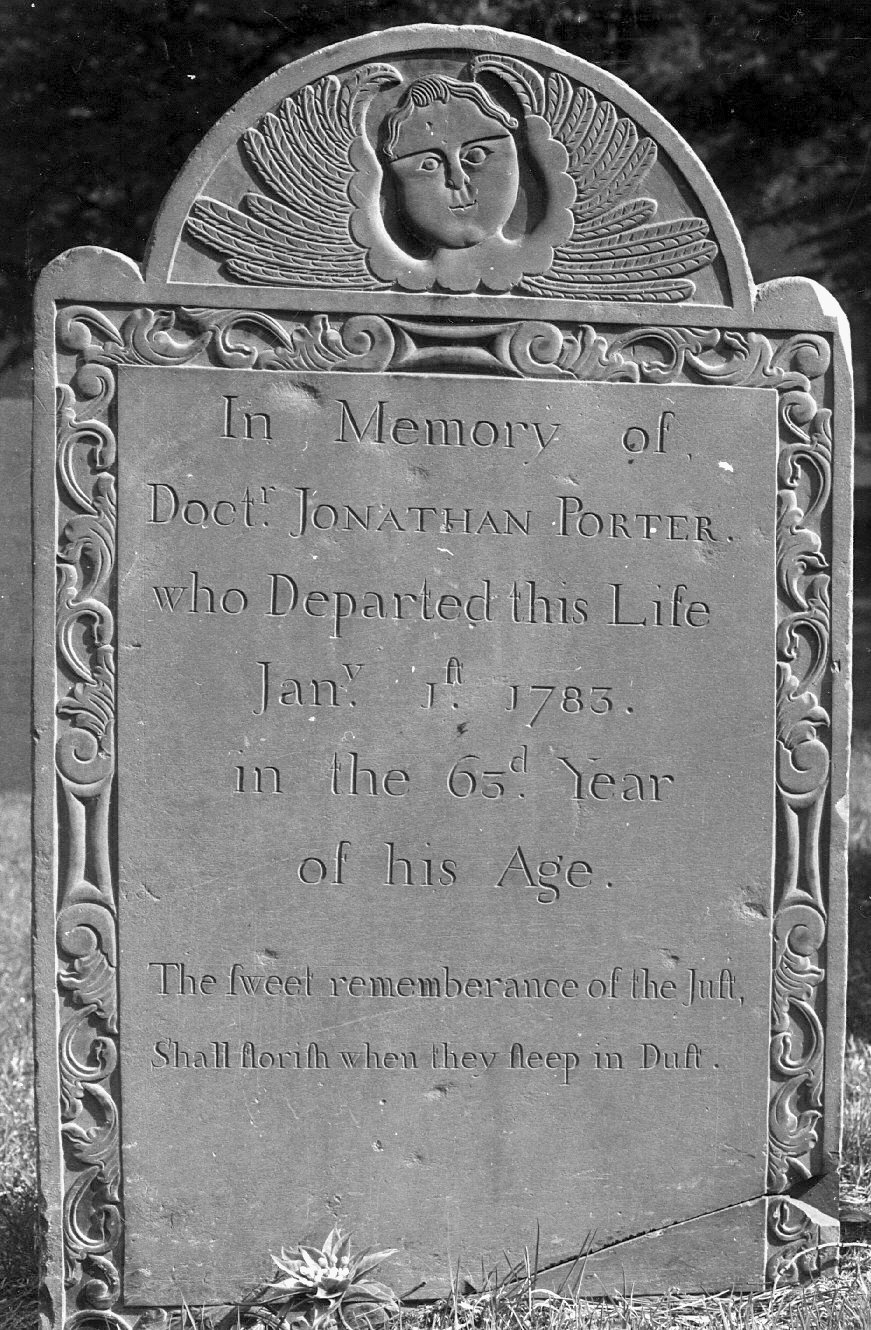 In Memory of
Doctʳ. JONATHAN PORTER.
who Departed this Life
Janʸ. 1ſᵗ. 1783.
in the 63ᵈ. Year
of his Age.
The ſweet rememberance of the Juſt,
Shall floriſh when they ſleep in Duſt.